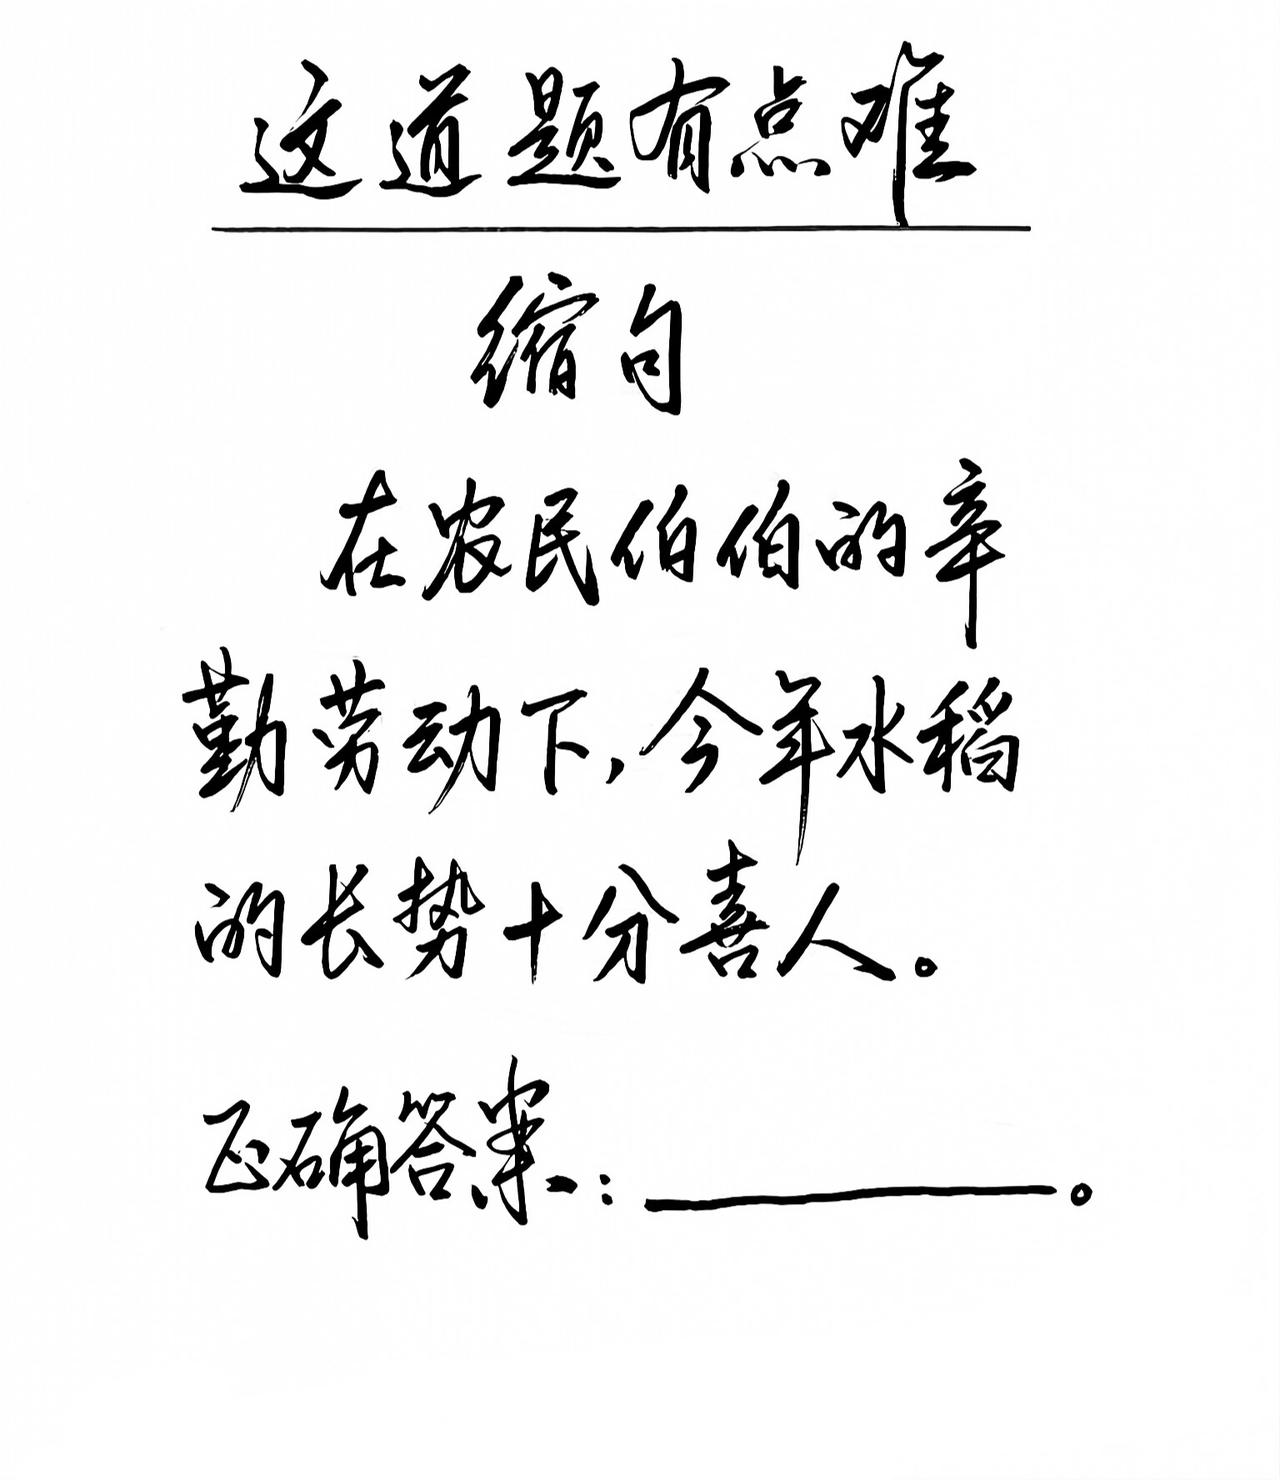 这道题有点难
缩句
在农民伯伯的辛
勤劳动下,今年水稻
的长势十分喜人。
正确答案:________。